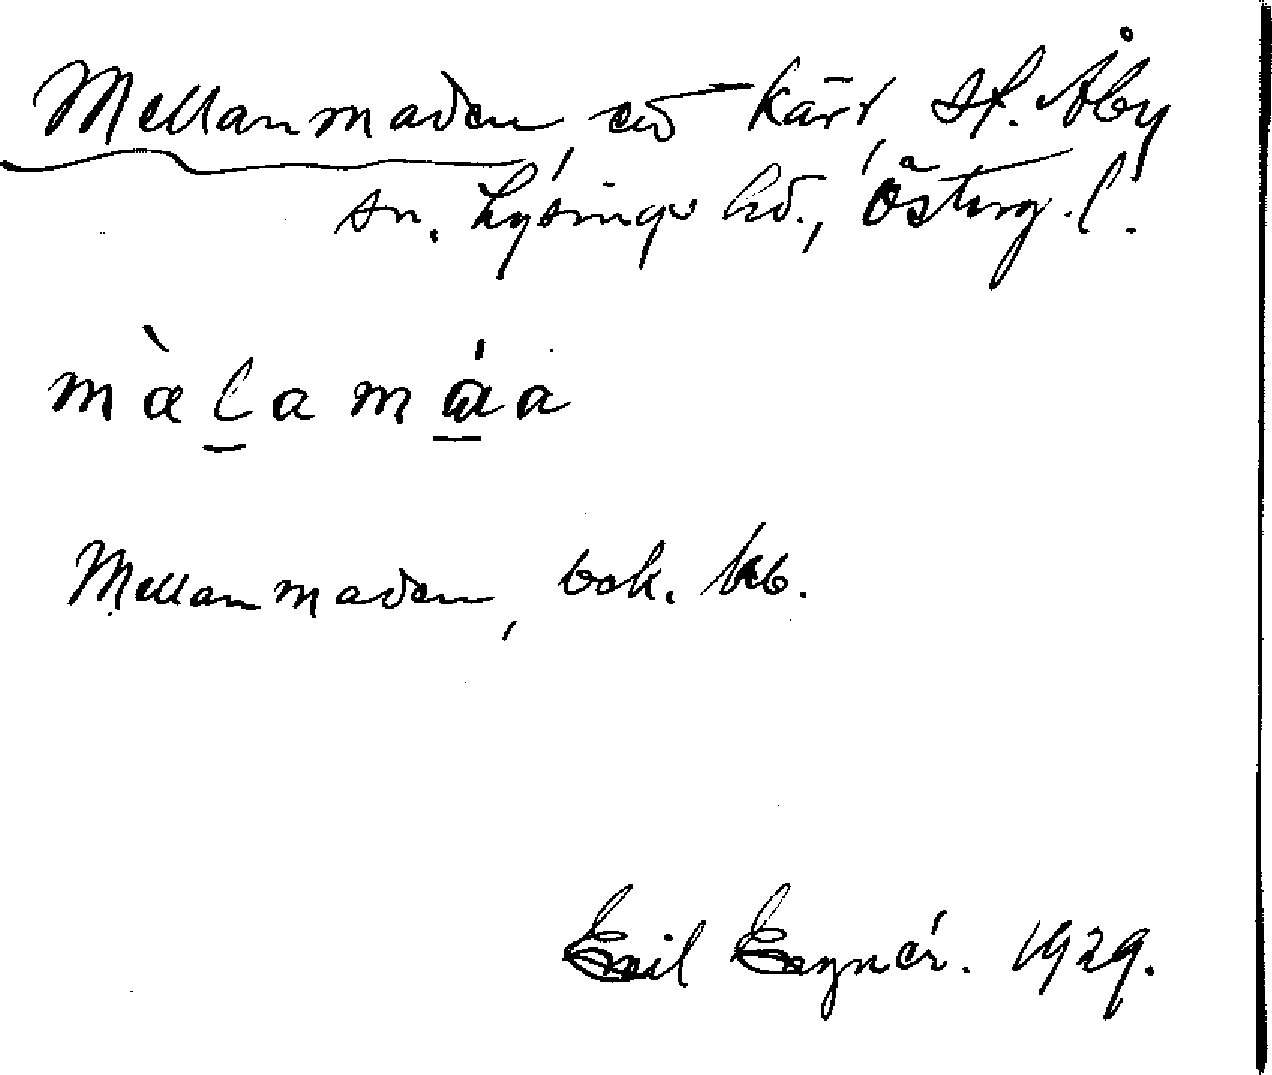 Mellanmaden, ett kärr, St. Åby
sn. Lysings hd., Österg. l.
màlamáa
Mellanmaden, bok. kb.
Emil Egnér. 1929.